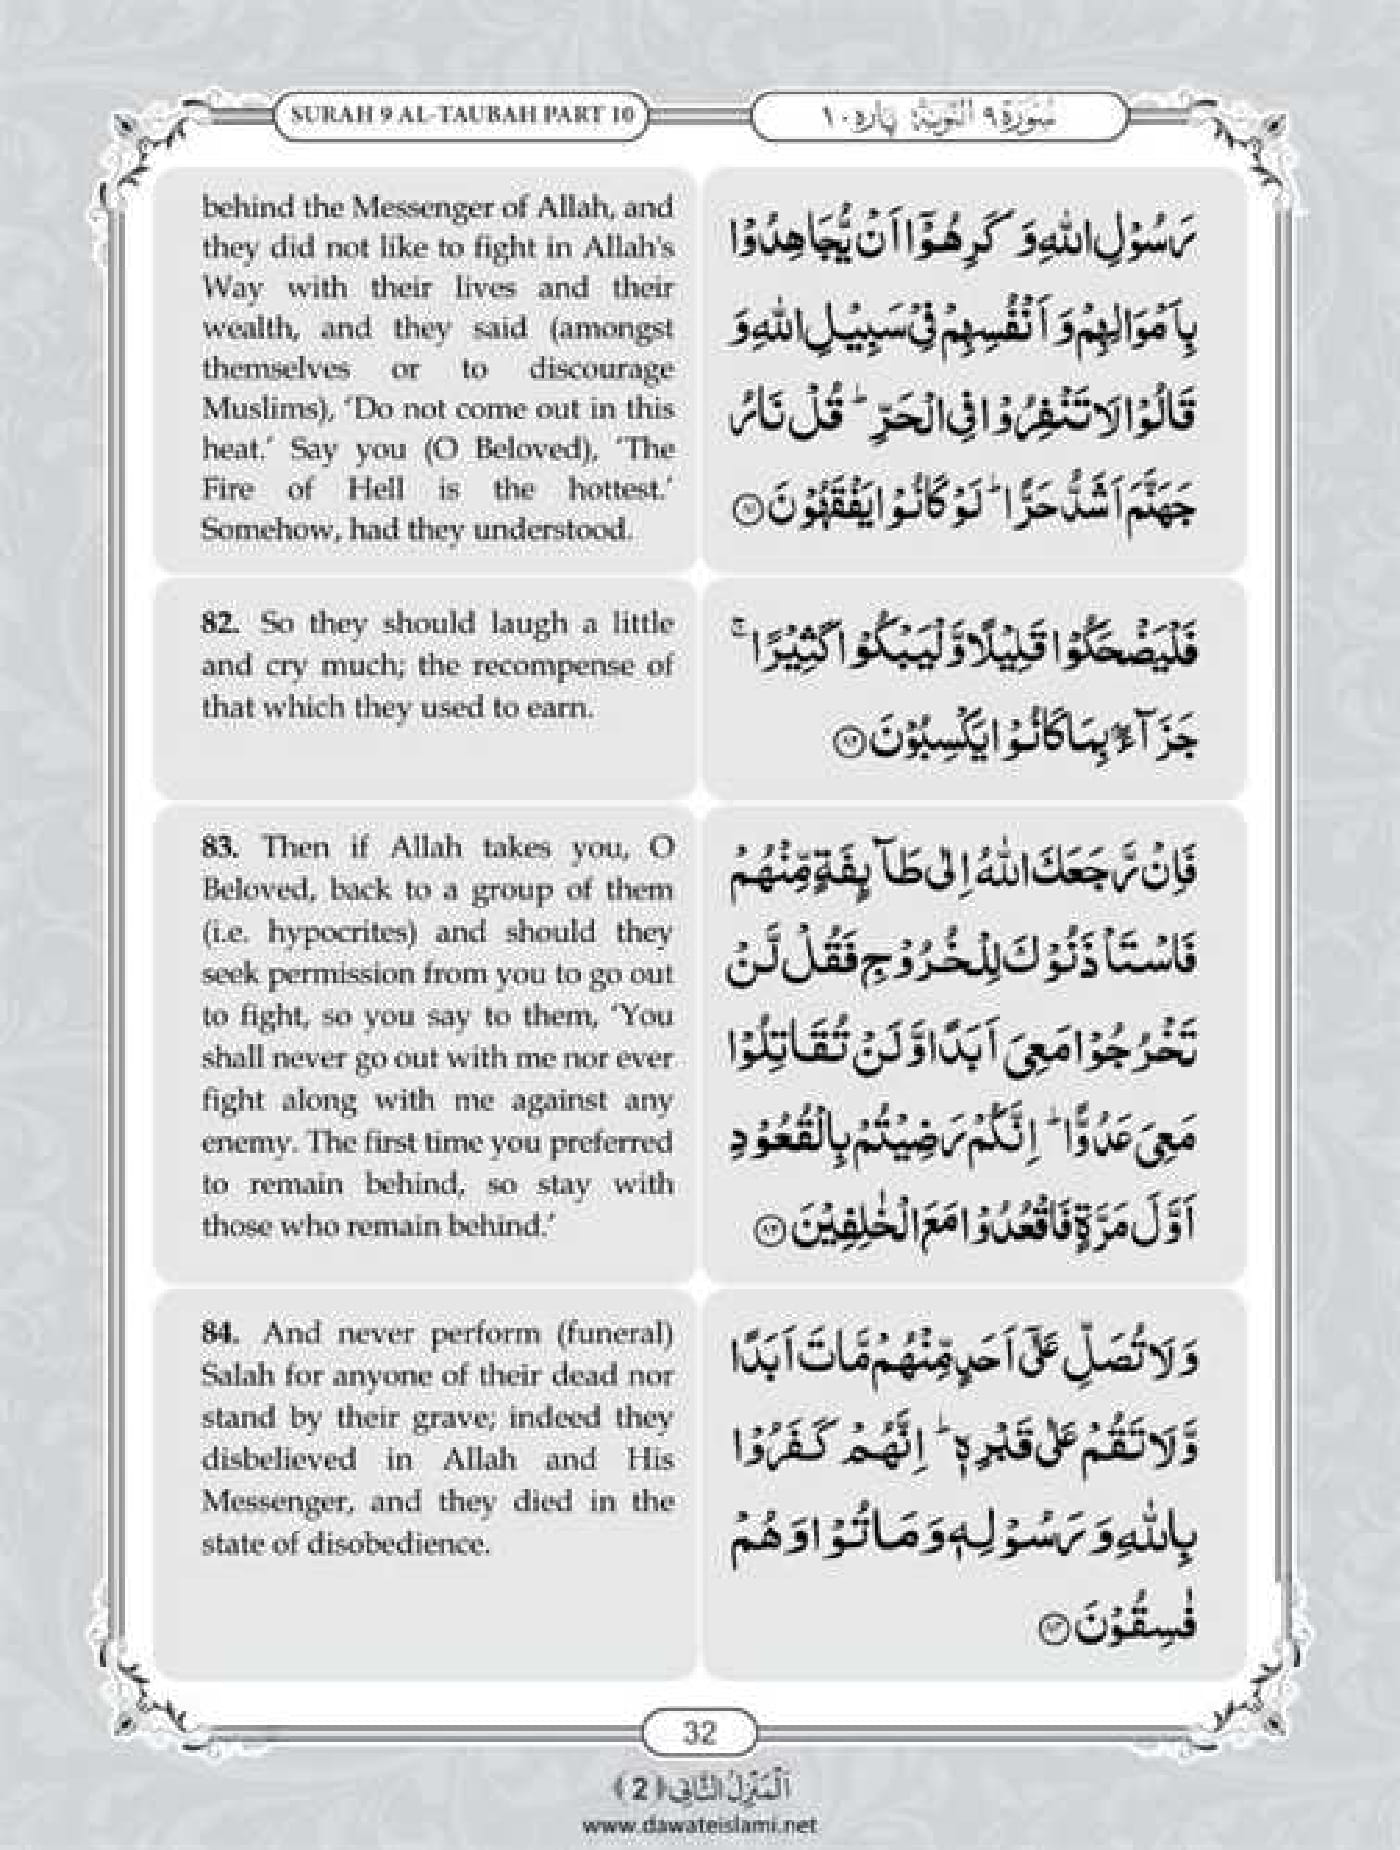 SURAH 9 AL-TAUBAH PART 10
سُوۡرَۃ ٩ اَلتَّوۡبَۃ پارہ ١٠
behind the Messenger of Allah, and
they did not like to fight in Allah's
Way with their lives and their
wealth, and they said (amongst
themselves or to discourage
Muslims), ‘Do not come out in this
heat.’ Say you (O Beloved), ‘The
Fire of Hell is the hottest.’
Somehow, had they understood.
رَسُوۡلِ اللّٰهِ وَ كَرِهُوۡۤا اَنۡ يُّجَاهِدُوۡا
بِاَمۡوَالِهِمۡ وَ اَنۡفُسِهِمۡ فِىۡ سَبِيۡلِ اللّٰهِ وَ
قَالُوۡا لَا تَنۡفِرُوۡا فِى الۡحَرِّ ؕ قُلۡ نَارُ
جَهَنَّمَ اَشَدُّ حَرًّا ؕ لَوۡ كَانُوۡا يَفۡقَهُوۡنَ ﴿۸۱﴾
82. So they should laugh a little
and cry much; the recompense of
that which they used to earn.
فَلۡيَضۡحَكُوۡا قَلِيۡلًا وَّلۡيَبۡكُوۡا كَثِيۡرًا ۚ
جَزَآءًۢ بِمَا كَانُوۡا يَكۡسِبُوۡنَ ﴿۸۲﴾
83. Then if Allah takes you, O
Beloved, back to a group of them
(i.e. hypocrites) and should they
seek permission from you to go out
to fight, so you say to them, ‘You
shall never go out with me nor ever
fight along with me against any
enemy. The first time you preferred
to remain behind, so stay with
those who remain behind.’
فَاِنۡ رَّجَعَكَ اللّٰهُ اِلٰى طَآئِفَةٍ مِّنۡهُمۡ
فَاسۡتَاۡذَنُوۡكَ لِلۡخُرُوۡجِ فَقُلۡ لَّنۡ
تَخۡرُجُوۡا مَعِىَ اَبَدًا وَّ لَنۡ تُقَاتِلُوۡا
مَعِىَ عَدُوًّا ؕ اِنَّكُمۡ رَضِيۡتُمۡ بِالۡقُعُوۡدِ
اَوَّلَ مَرَّةٍ فَاقۡعُدُوۡا مَعَ الۡخٰلِفِيۡنَ ﴿۸۳﴾
84. And never perform (funeral)
Salah for anyone of their dead nor
stand by their grave; indeed they
disbelieved in Allah and His
Messenger, and they died in the
state of disobedience.
وَ لَا تُصَلِّ عَلٰٓى اَحَدٍ مِّنۡهُمۡ مَّاتَ اَبَدًا
وَّ لَا تَقُمۡ عَلٰى قَبۡرِهٖ ؕ اِنَّهُمۡ كَفَرُوۡا
بِاللّٰهِ وَ رَسُوۡلِهٖ وَ مَا تُوۡا وَ هُمۡ
فٰسِقُوۡنَ ﴿۸۴﴾
32
اَلۡمَنۡزِلُ الثَّانِی ﴿2﴾
www.dawateislami.net